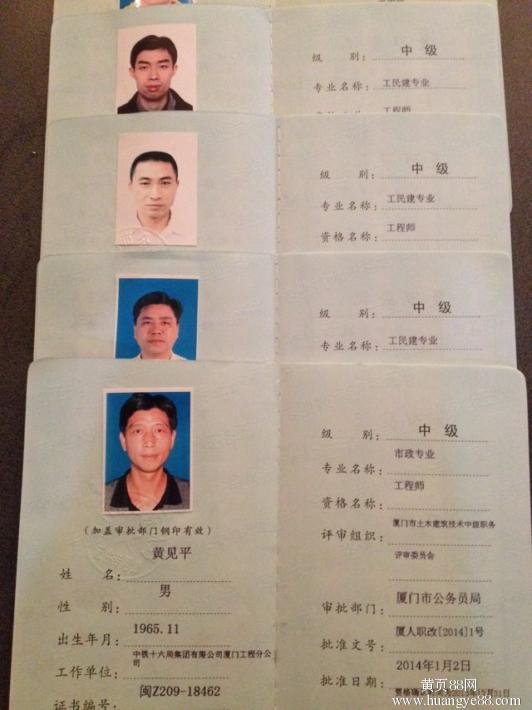 级 别： 中 级
专业名称： 工民建专业
工程师
级 别： 中 级
专业名称： 工民建专业
资格名称： 工程师
级 别： 中 级
专业名称： 工民建专业
(加盖审批部门钢印有效)
姓 名： 黄见平
性 别： 男
出生年月： 1965.11
工作单位： 中铁十六局集团有限公司厦门工程分公
司
证书编号： 闽Z209-18462
级 别： 中 级
专业名称： 市政专业
资格名称： 工程师
评审组织： 厦门市土木建筑技术中级职务
评审委员会
审批部门： 厦门市公务员局
批准文号： 厦人职改[2014]1号
批准日期： 2014年1月2日
黄页88网
www.huangye88.com